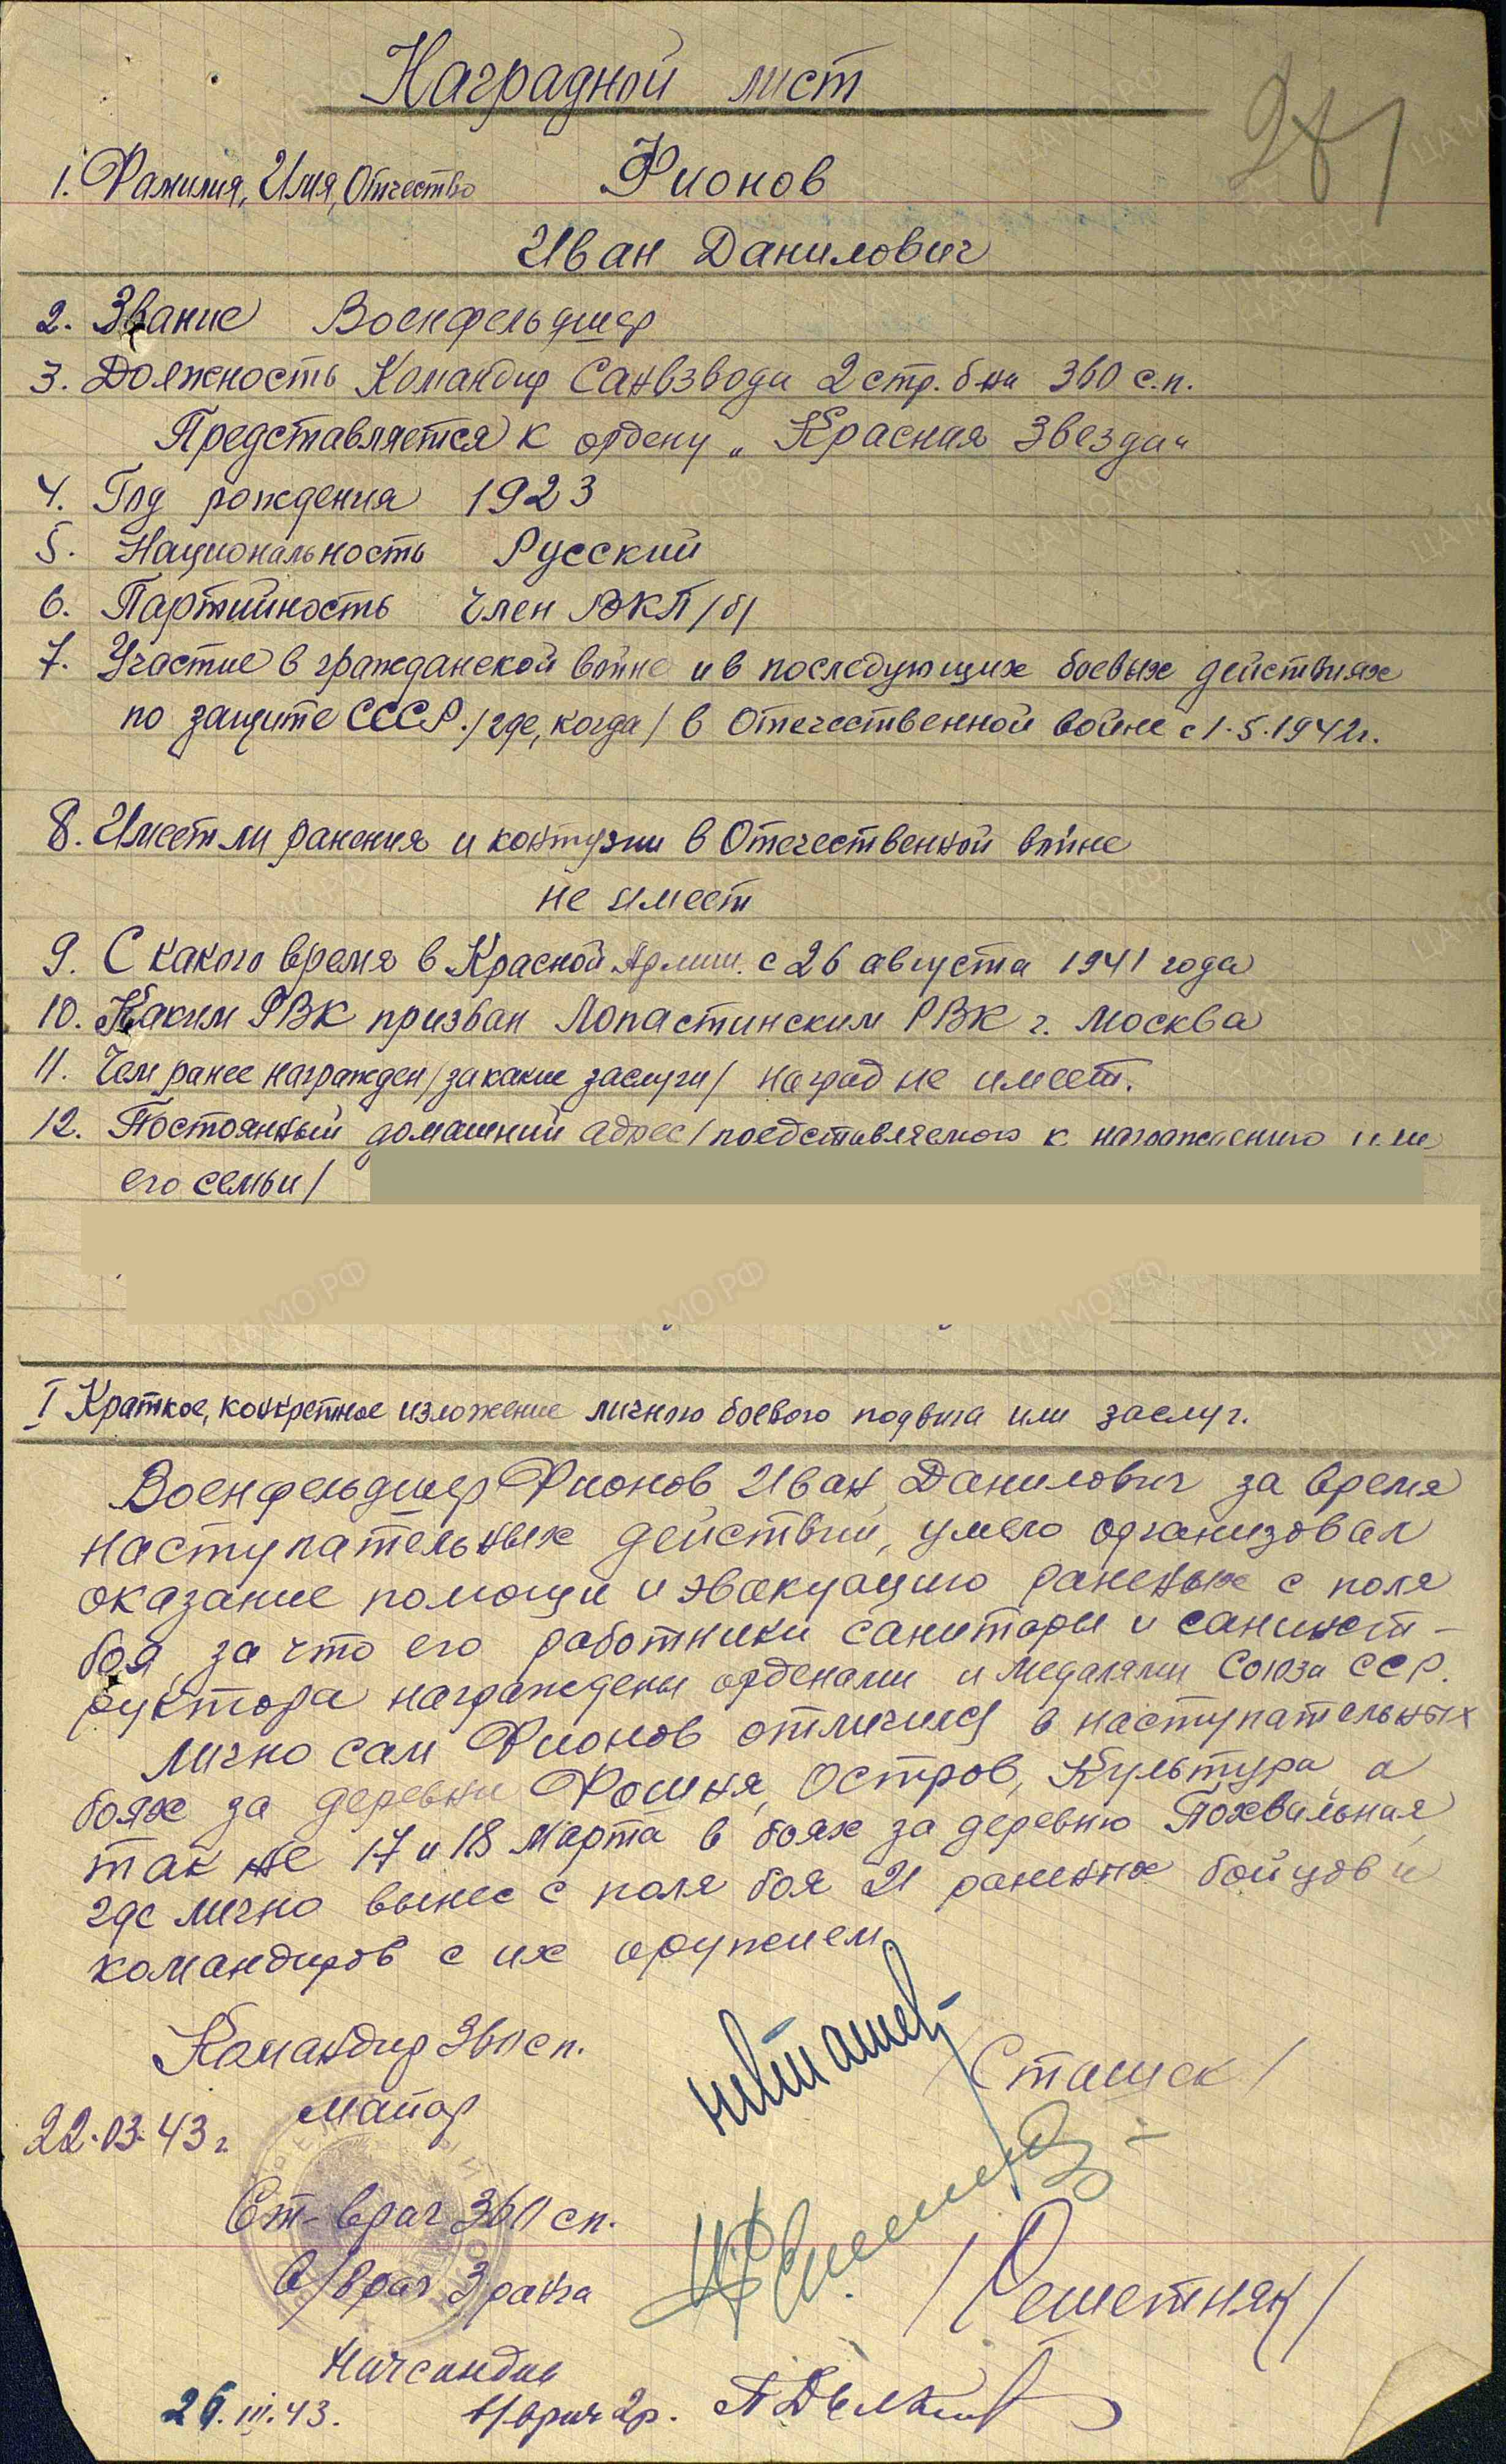 Наградной лист
281
1. Фамилия, Имя, Отчество Фионов
Иван Данилович
2. Звание Военфельдшер
3. Должность Командир Санвзвода 2 стр. б-на 360 с.п.
Представляется к ордену „Красная Звезда"
4. Год рождения 1923
5. Национальность Русский
6. Партийность Член ВКП/б/
7. Участие в гражданской войне и в последующих боевых действиях
по защите СССР. /где, когда/ в Отечественной войне с 1.5.1942г.
8. Имеет ли ранения и контузии в Отечественной войне
не имеет
9. С какого время в Красной Армии. с 26 августа 1941 года
10. Каким РВК призван Лопастинским РВК г. Москва
11. Чем ранее награжден /за какие заслуги/ наград не имеет.
12. Постоянный домашний адрес /представляемого к награждению или
его семьи/
I Краткое, конкретное изложение личного боевого подвига или заслуг.
Военфельдшер Фионов Иван Данилович за время
наступательных действий, умело организовал
оказание помощи и эвакуацию раненых с поля
боя, за что его работники санитары и саниист-
руктора награждены орденами и медалями Союза ССР.
Лично сам Фионов отличился в наступательных
боях за деревни Фошня, Остров, Культура, а
так же 17 и 18 марта в боях за деревню Похвальная,
где лично вынес с поля боя 21 раненых бойцов и
командиров с их оружием
Командир 360 сп.
майор /Сташек/
22.03.43 г.
Ст. врач 360 сп.
в/врач 3 ранга /Решетняк/
Начсандив
26.III.43. в/врач 2 р.